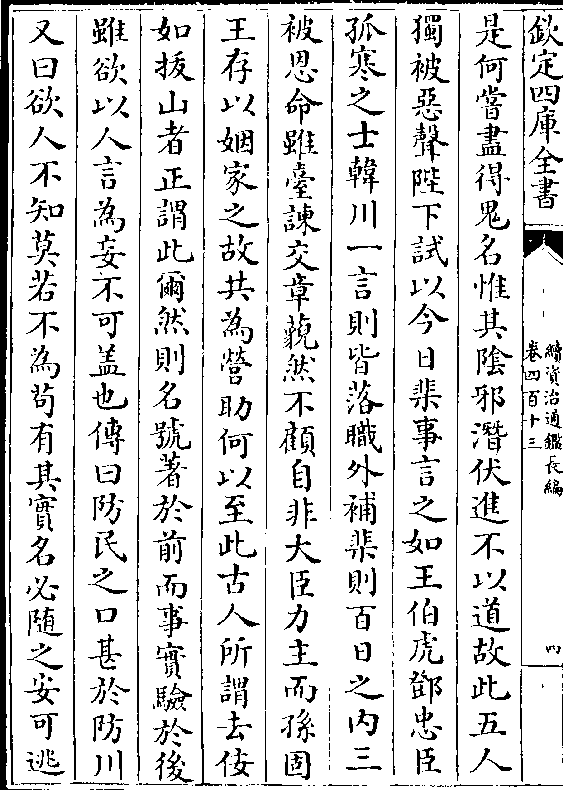 欽定四庫全書
續資治通鑑長編
卷四百十三
四
是何嘗盡得鬼名惟其陰邪潛伏進不以道故此五人
獨被惡聲陛下試以今日棐事言之如王伯虎鄧忠臣
孤寒之士韓川一言則皆落職外補棐則百日之内三
被恩命雖臺諫交章藐然不顧自非大臣力主而孫固
王存以姻家之故共為營助何以至此古人所謂去佞
如拔山者正謂此爾然則名號著於前而事實驗於後
雖欲以人言為妄不可盖也傳曰防民之口甚於防川
又曰欲人不知莫若不為苟有其實名必随之安可逃